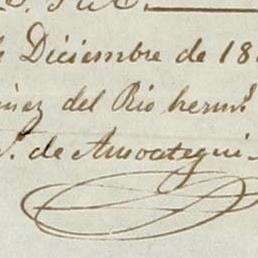 Diciembre de 18
del Rio herm.^s
de Ansoategui